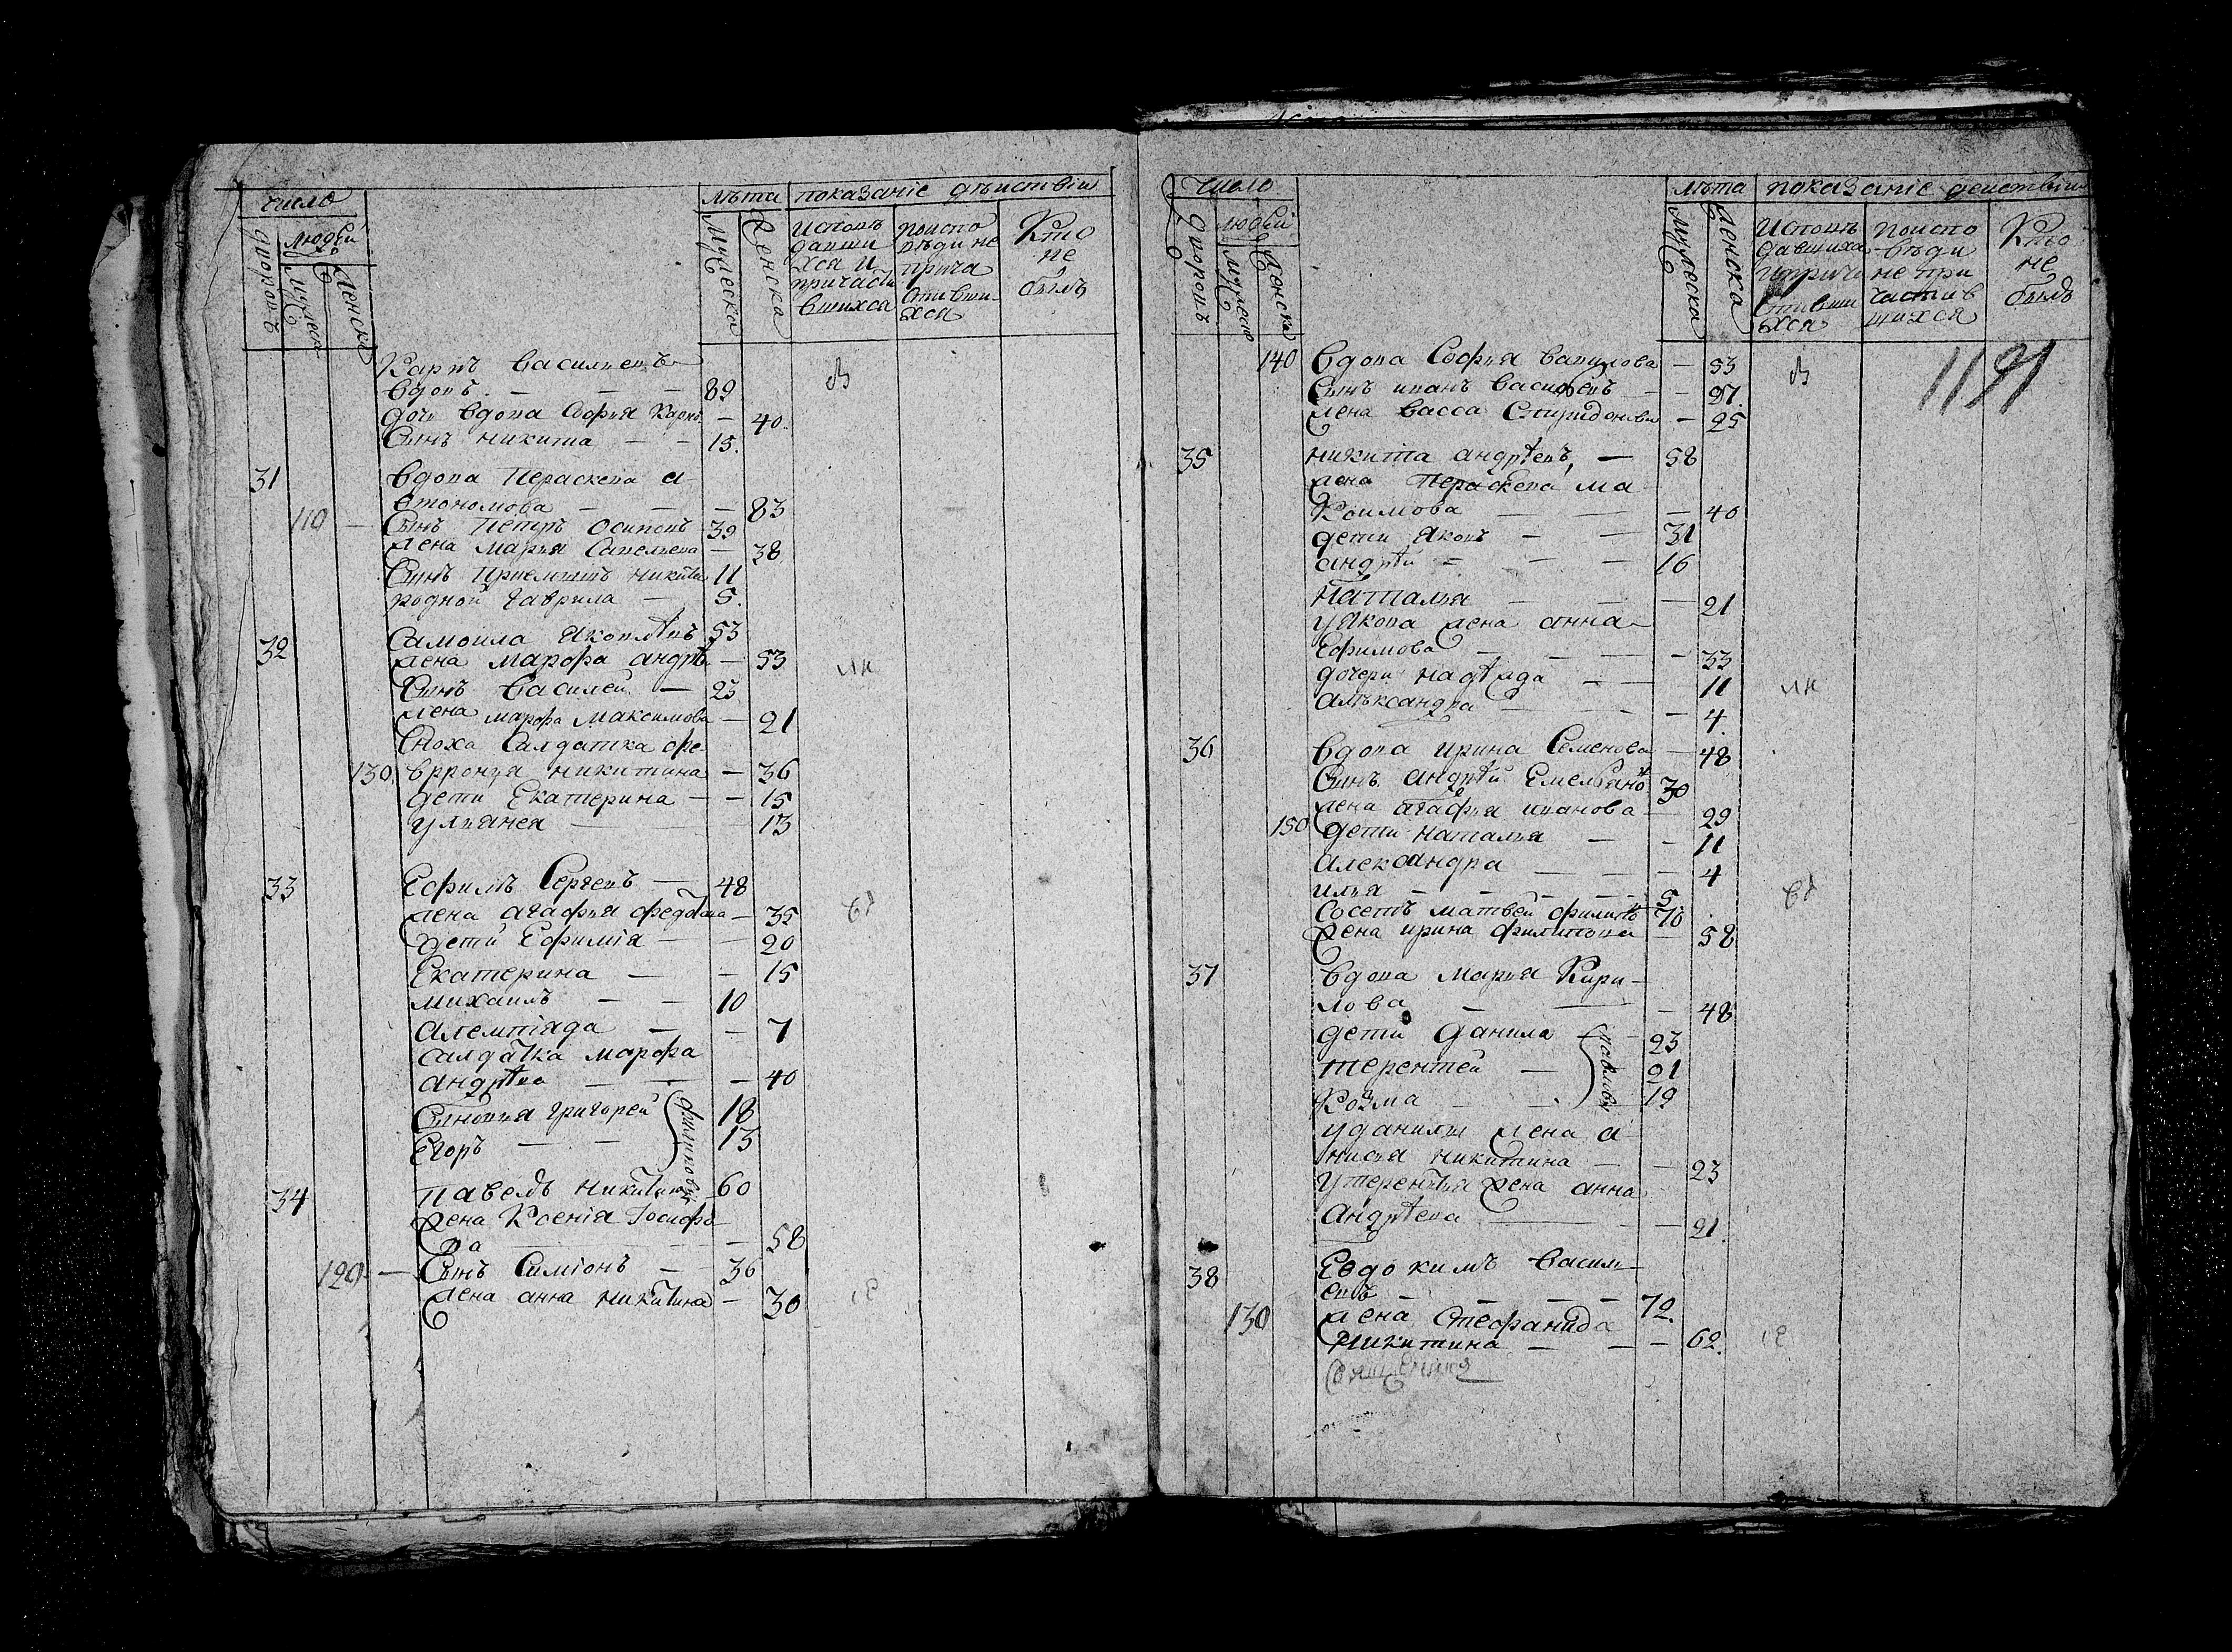 число
лѣта показаніе дѣиствіи
дворовъ
людей
мужеска
женска
мужеска
женска
исповѣ
давши
хся и
причасти
вшихся
поиспо
вѣди не
прича
стивши
хся
Кто
не
былъ
Карпъ васильевъ
вдовъ — — — 89
дочь вдова Софья Карпо. — 40
Сынъ никита — — 15.
31 вдова Пераскева а-
втономова — — — 83
110 — Сынъ Петръ Осиповъ 39
жена Марья Савельева — 38
Сынъ приемышъ никита 11
родной Гаврила — 5.
32 Самоила яковлѣвъ 53
жена марфа андрѣ. — 53
Сынъ василей — 25
жена марфа максимова — 21
Сноха Салдатка фе-
130 вронья никитина — 36
дети Екатерина — — 15
ульянея — — 13
33 Ефимъ Сергевъ — 48
жена агафья федо — 35
дети Ефимія — — 20
Екатерина — — 15
михаилъ — — 10
алемпіяда — — 7
салдатка марфа
андрѣва — — — 40
Сыновья григорей 18
Егоръ — — 13
филиповы
34 павелъ никитинъ 60
жена Ксенія Іосифо-
ва — — 58
120 — Сынъ Симіонъ — 36
жена анна никитина — 30
число
лѣта показаніе деиствіи
дворовъ
людей
мужеска
женска
мужеска
женска
исповѣ
давшихся
и прича
стивши
хся
поиспо
вѣди
не при
частив
шихся
Кто
не
былъ
1191
140 вдова Софья вавилова — 53
Сынъ иванъ василевъ — — 27.
жена васса Спиридонова — 25
35 никита андрѣевъ, — 58
жена Пераскева ма-
ксимова — — — 40
дети яковъ — — 31
андрѣй — — — 16
Наталья — — — 21
у якова жена анна
Ефимова — — — 33
дочери надѣжда — — 11
алѣксандра — — — 4.
36 вдова ирина Семенова — 48
Сынъ андрѣй Емельяно 30
жена агафья иванова — 29
150 дети наталья — — 11
александра — — — 4
илья — — — — 5
Соседъ матвей филипо 70
жена ирина филипова — 58
37 вдова Марья Кири-
лова — — — 48
дети данила — 23
терентей — 21
Козма — — 19
павловы
у данилы жена а-
нисья никитина — — 23
у терентья жена анна
андрѣева — — 21.
38 Евдокимъ василь-
евъ — — — — 72.
130 жена Стефанида
никитина — — — 62.